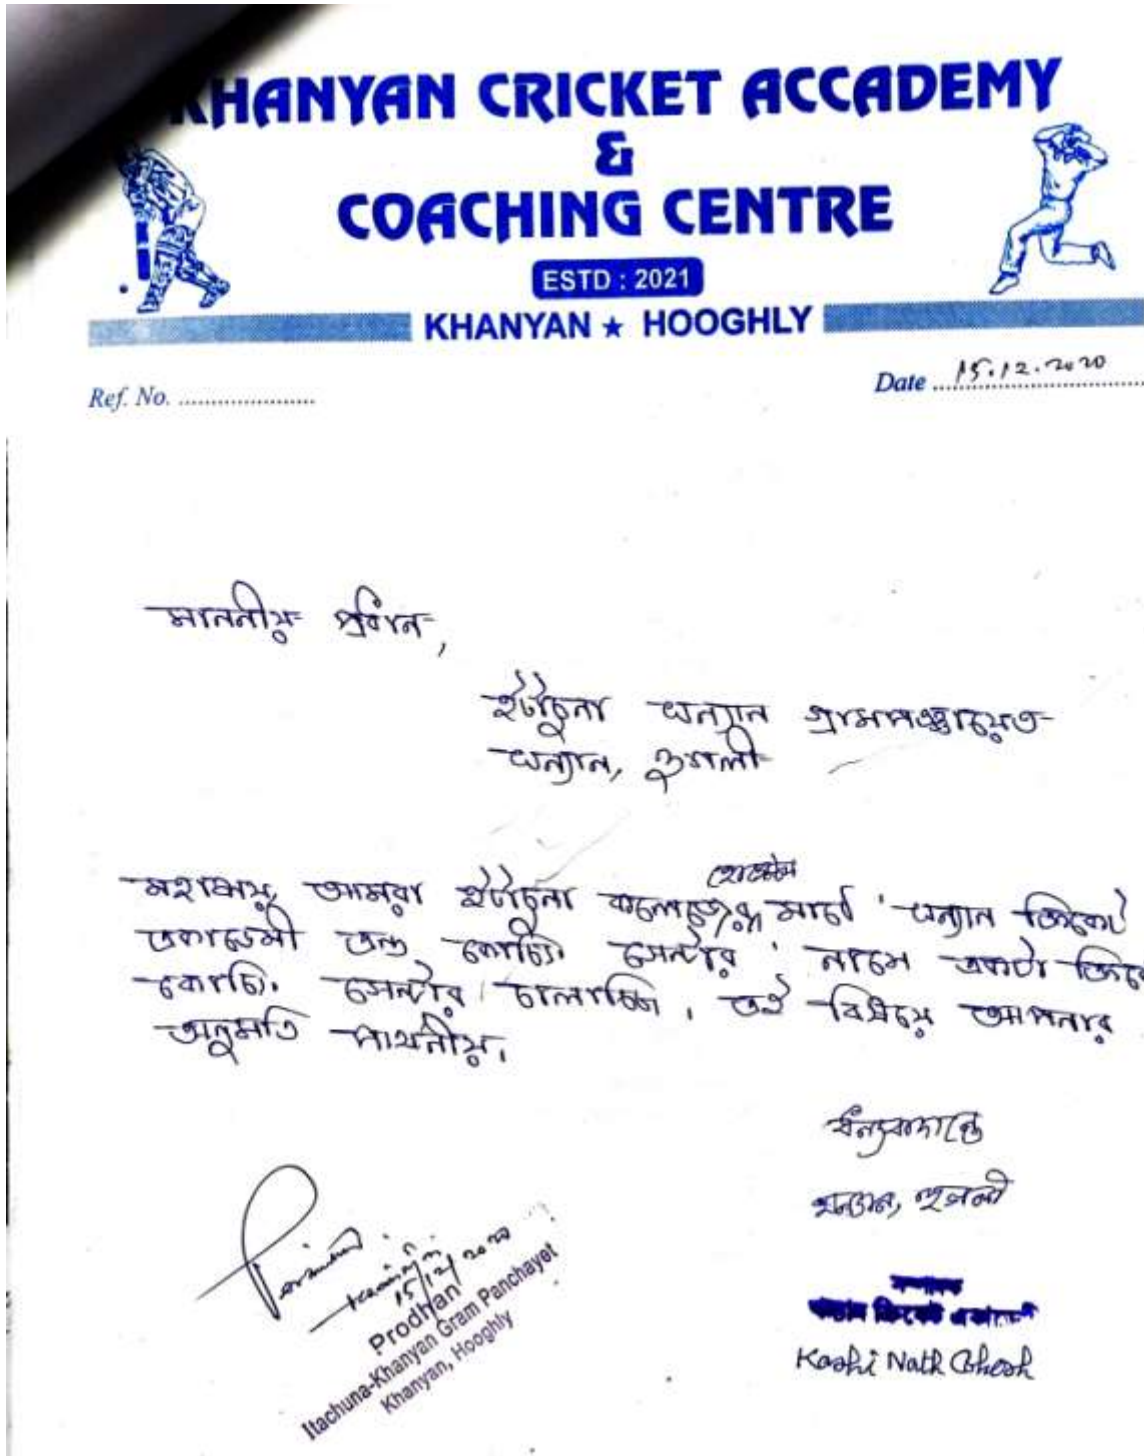 KHANYAN CRICKET ACCADEMY
&
COACHING CENTRE
ESTD : 2021
KHANYAN ★ HOOGHLY
Ref. No. ....................
Date 15.12.2020
মাননীয় প্রধান,
ইটাচুনা খন্যান গ্রামপঞ্চায়েত
খন্যান, হুগলী
মহাশয়, আমরা ইটাচুনা কলেজের মাঠে 'খন্যান ক্রিকেট
একাডেমী এন্ড কোচিং সেন্টার' নামে একটা
কোচিং সেন্টার চালাচ্ছি। এই বিষয়ে আপনার
অনুমতি পার্থনীয়।
ধন্যবাদান্তে
খন্যান, হুগলী
সম্পাদক
খন্যান ক্রিকেট একাডেমী
Kashi Nath Ghosh
15/12/2020
Prodhan
Itachuna-Khanyan Gram Panchayet
Khanyan, Hooghly